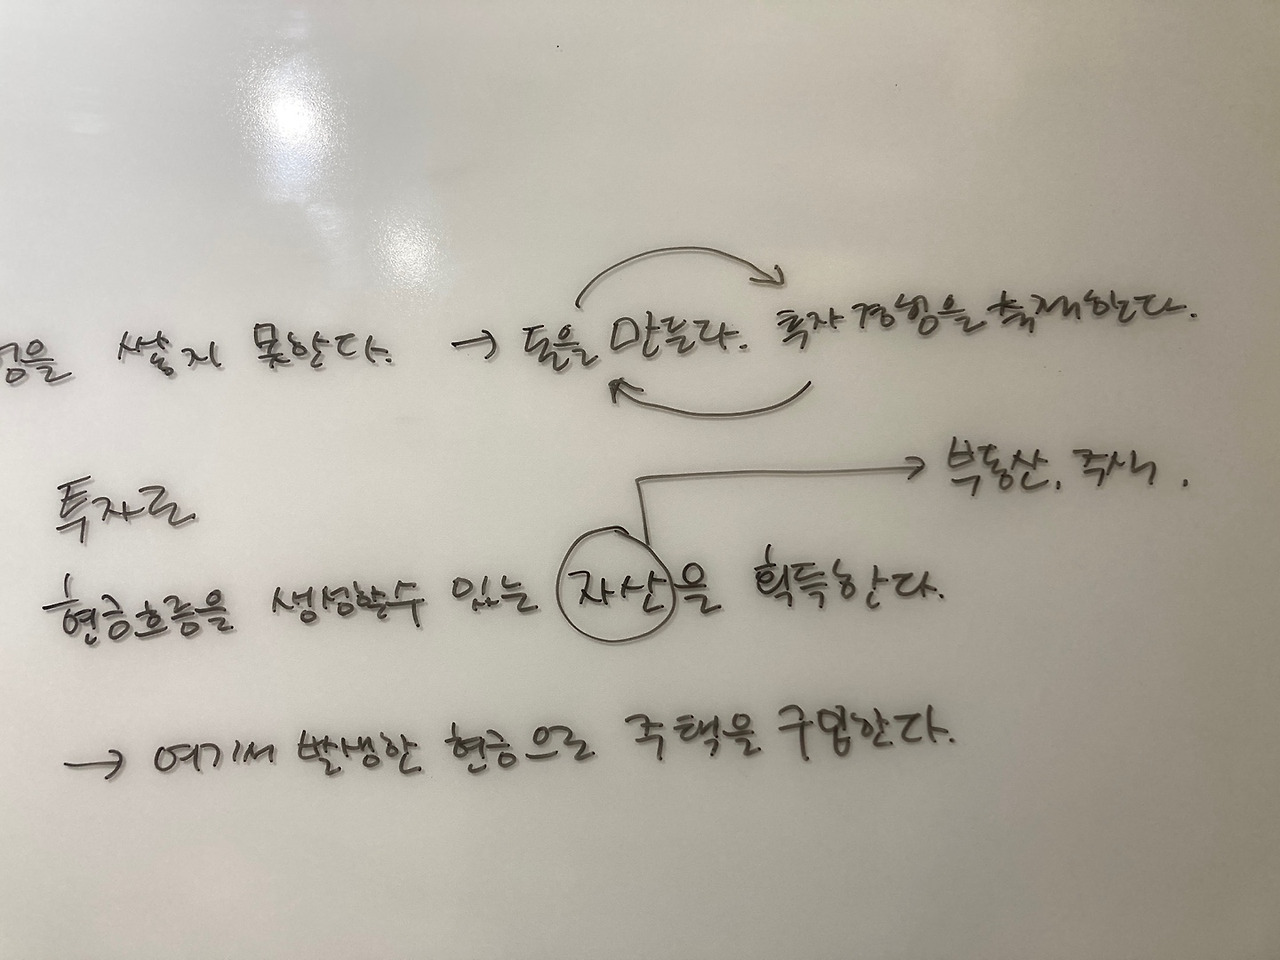 험을 쌓지 못한다. → 돈을 만든다. 투자경험을 축적한다.
→ 부동산, 주식,
투자로
현금흐름을 생성할수 있는 자산을 획득한다.
→ 여기서 발생한 현금으로 주택을 구입한다.